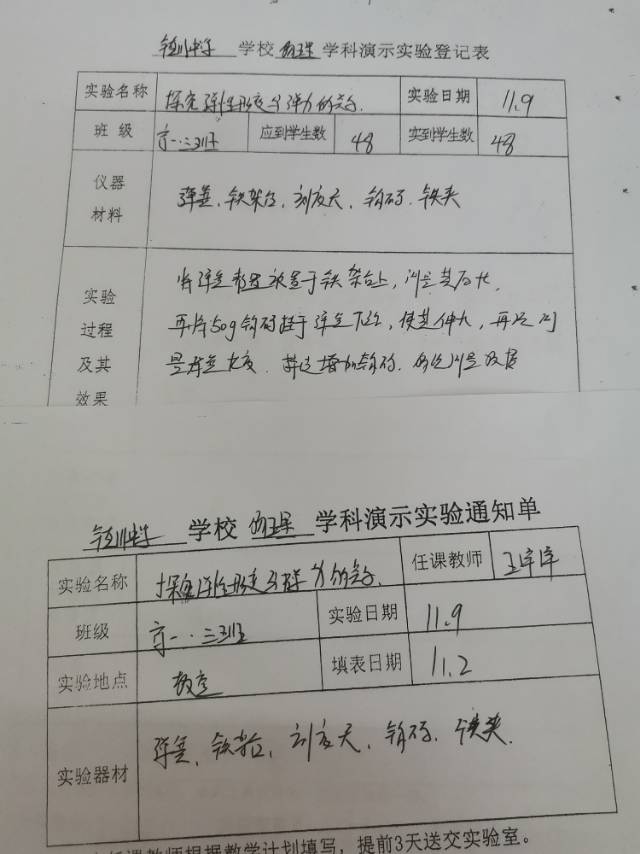 学校 物理 学科演示实验登记表
实验名称 探究弹性形变与弹力的关系 实验日期 11.9
班 级 高一·三班 应到学生数 48 实到学生数 48
仪器
材料
弹簧、铁架台、刻度尺、钩码、铁夹
实验
过程
及其
效果
将弹簧 放置于铁架台上，测量其原长，
再将50g钩码挂于弹簧下端，使其伸长，再次测
量弹簧长度。 增加钩码， 测量数据
学校 物理 学科演示实验通知单
实验名称 探究弹性形变与弹力的关系 任课教师
班级 高一·三班 实验日期 11.9
实验地点 教室 填表日期 11.2
实验器材 弹簧、铁架台、刻度尺、钩码、铁夹
任课教师根据教学计划填写，提前3天送交实验室。